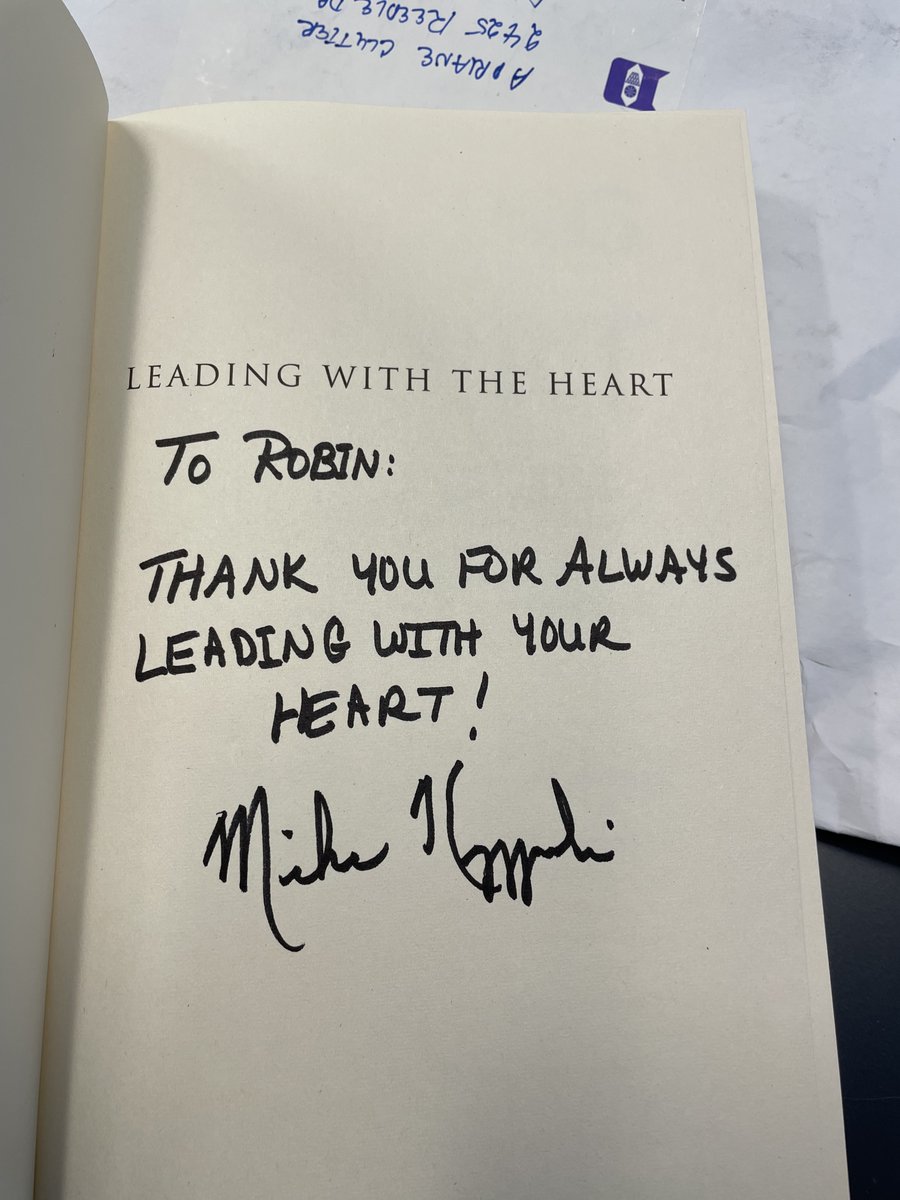 ADRIANE CUTTER
2425 REEDLE DR
LEADING WITH THE HEART
TO ROBIN:
THANK YOU FOR ALWAYS
LEADING WITH YOUR
HEART!
Mike